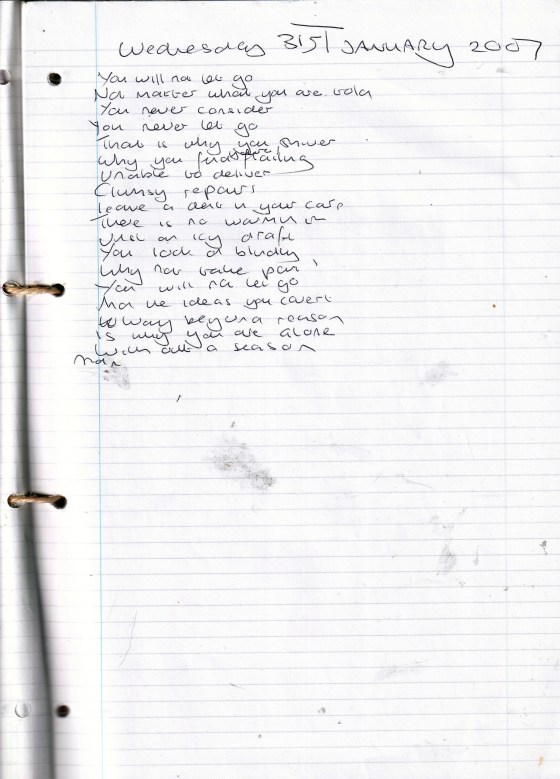 Wednesday 31ST JANUARY 2007
You will not let go
No matter what you are told
You never consider
You never let go
That is why you shiver
Why you find failing
Unable to deliver
Clumsy repairs
Leave a dent in your care
There is no warmth in
Just an icy draft
You look a
Why not take part
You will not let go
ideas you covert
Way beyond a reason
Is why you are alone
With out a season